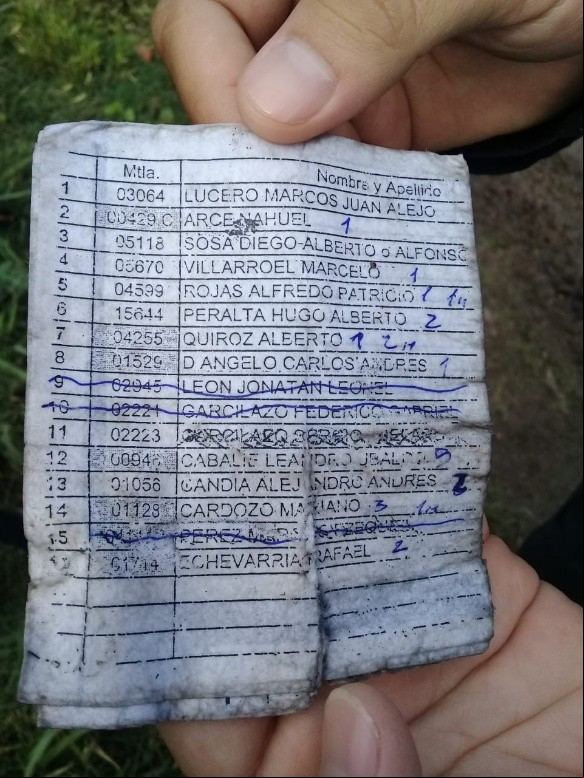 Mtla. Nombre y Apellido
1 03064 LUCERO MARCOS JUAN ALEJO
2 00429 C ARCE NAHUEL 1
3 05118 SOSA DIEGO ALBERTO o ALFONSO
4 05670 VILLARROEL MARCELO 1
5 04599 ROJAS ALFREDO PATRICIO 1
6 15644 PERALTA HUGO ALBERTO 2
7 04255 QUIROZ ALBERTO 1
8 01529 D ANGELO CARLOS ANDRES 1
9 02945 LEON JONATAN LEONEL
10 02221 GARCILAZO FEDERICO GABRIEL
11 02223 GARCILAZO SERGIO
12 CABALIE LEANDRO UBALDO
13 01056 CANDIA ALEJANDRO ANDRES
14 01128 CARDOZO MARIANO 3
15 PEREZ EZEQUIEL
ECHEVARRIA RAFAEL 2